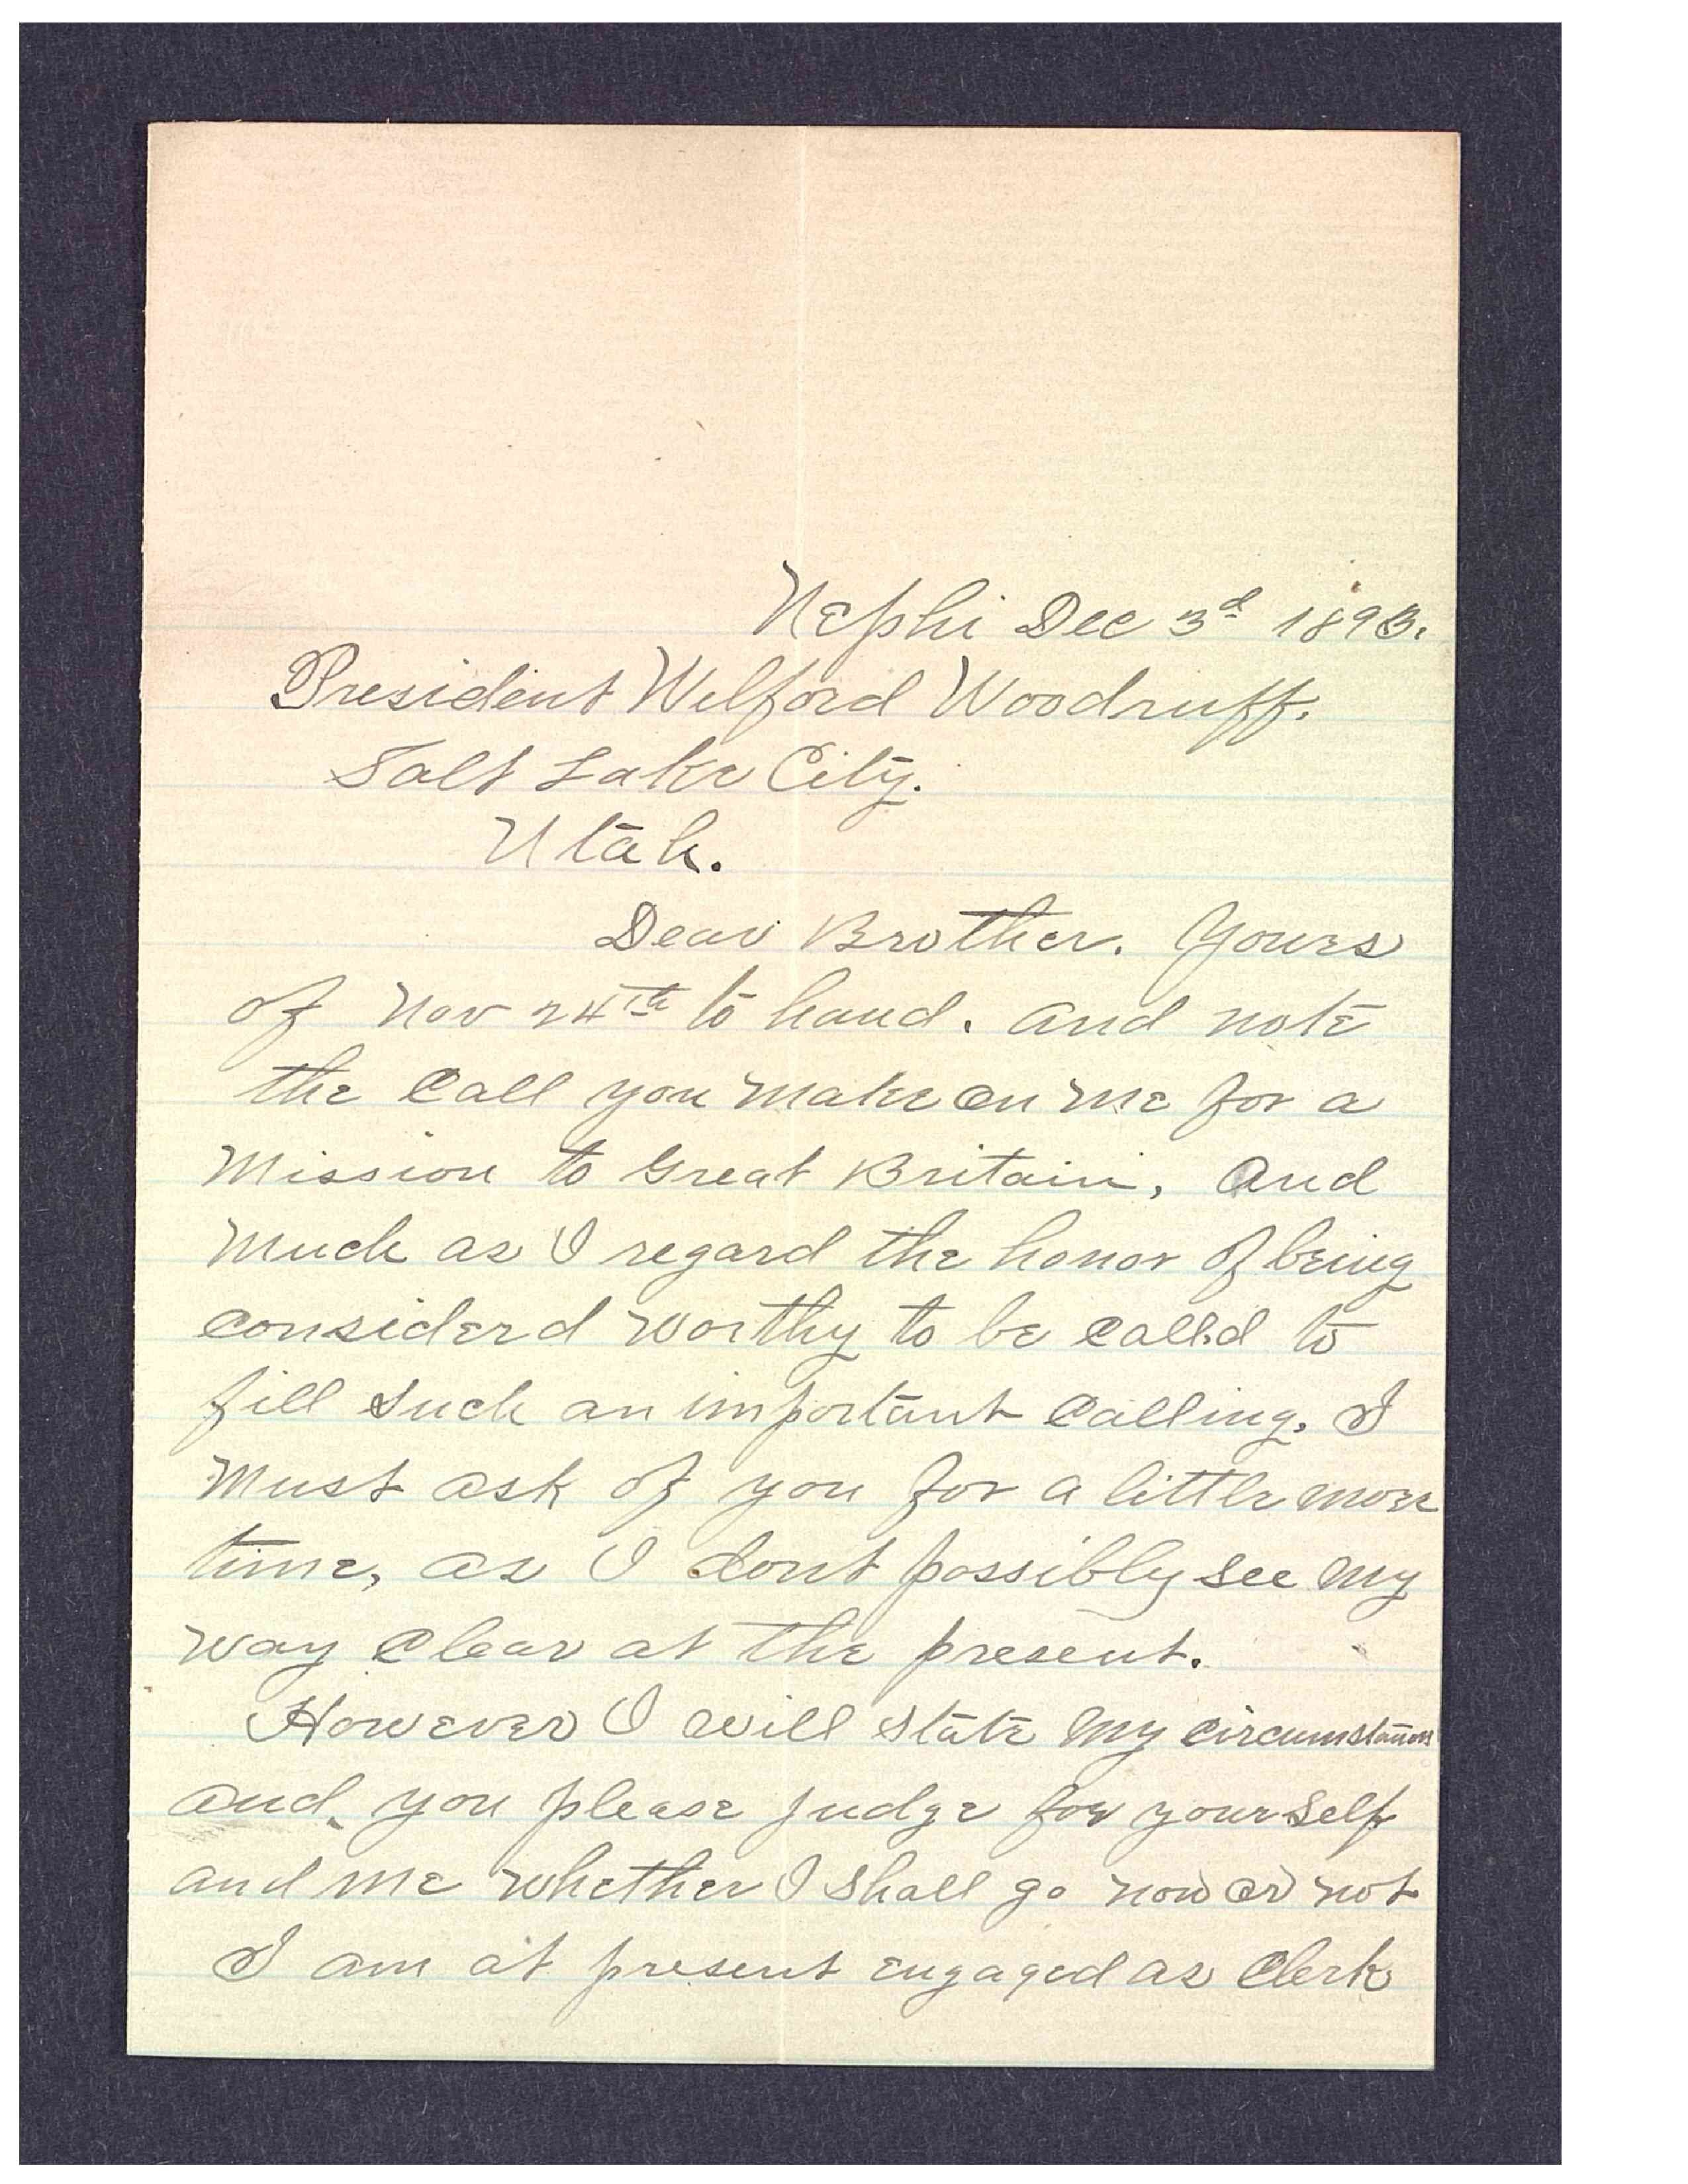 Nephi Dec 3d 1893.
President Wilford Woodruff.
Salt Lake City.
Utah.
Dear Brother. Yours
of Nov 24th to hand. and note
the Call you make on me for a
Mission to Great Britain, And
much as I regard the honor of being
considerd worthy to be called to
fill such an important Calling, I
must ask of you for a little more
time, as I dont possibly see my
way Clear at the present.
However I will state my circumstances
and, you please judge for yourself
and me whether I shall go now or not
I am at present engaged as Clerk